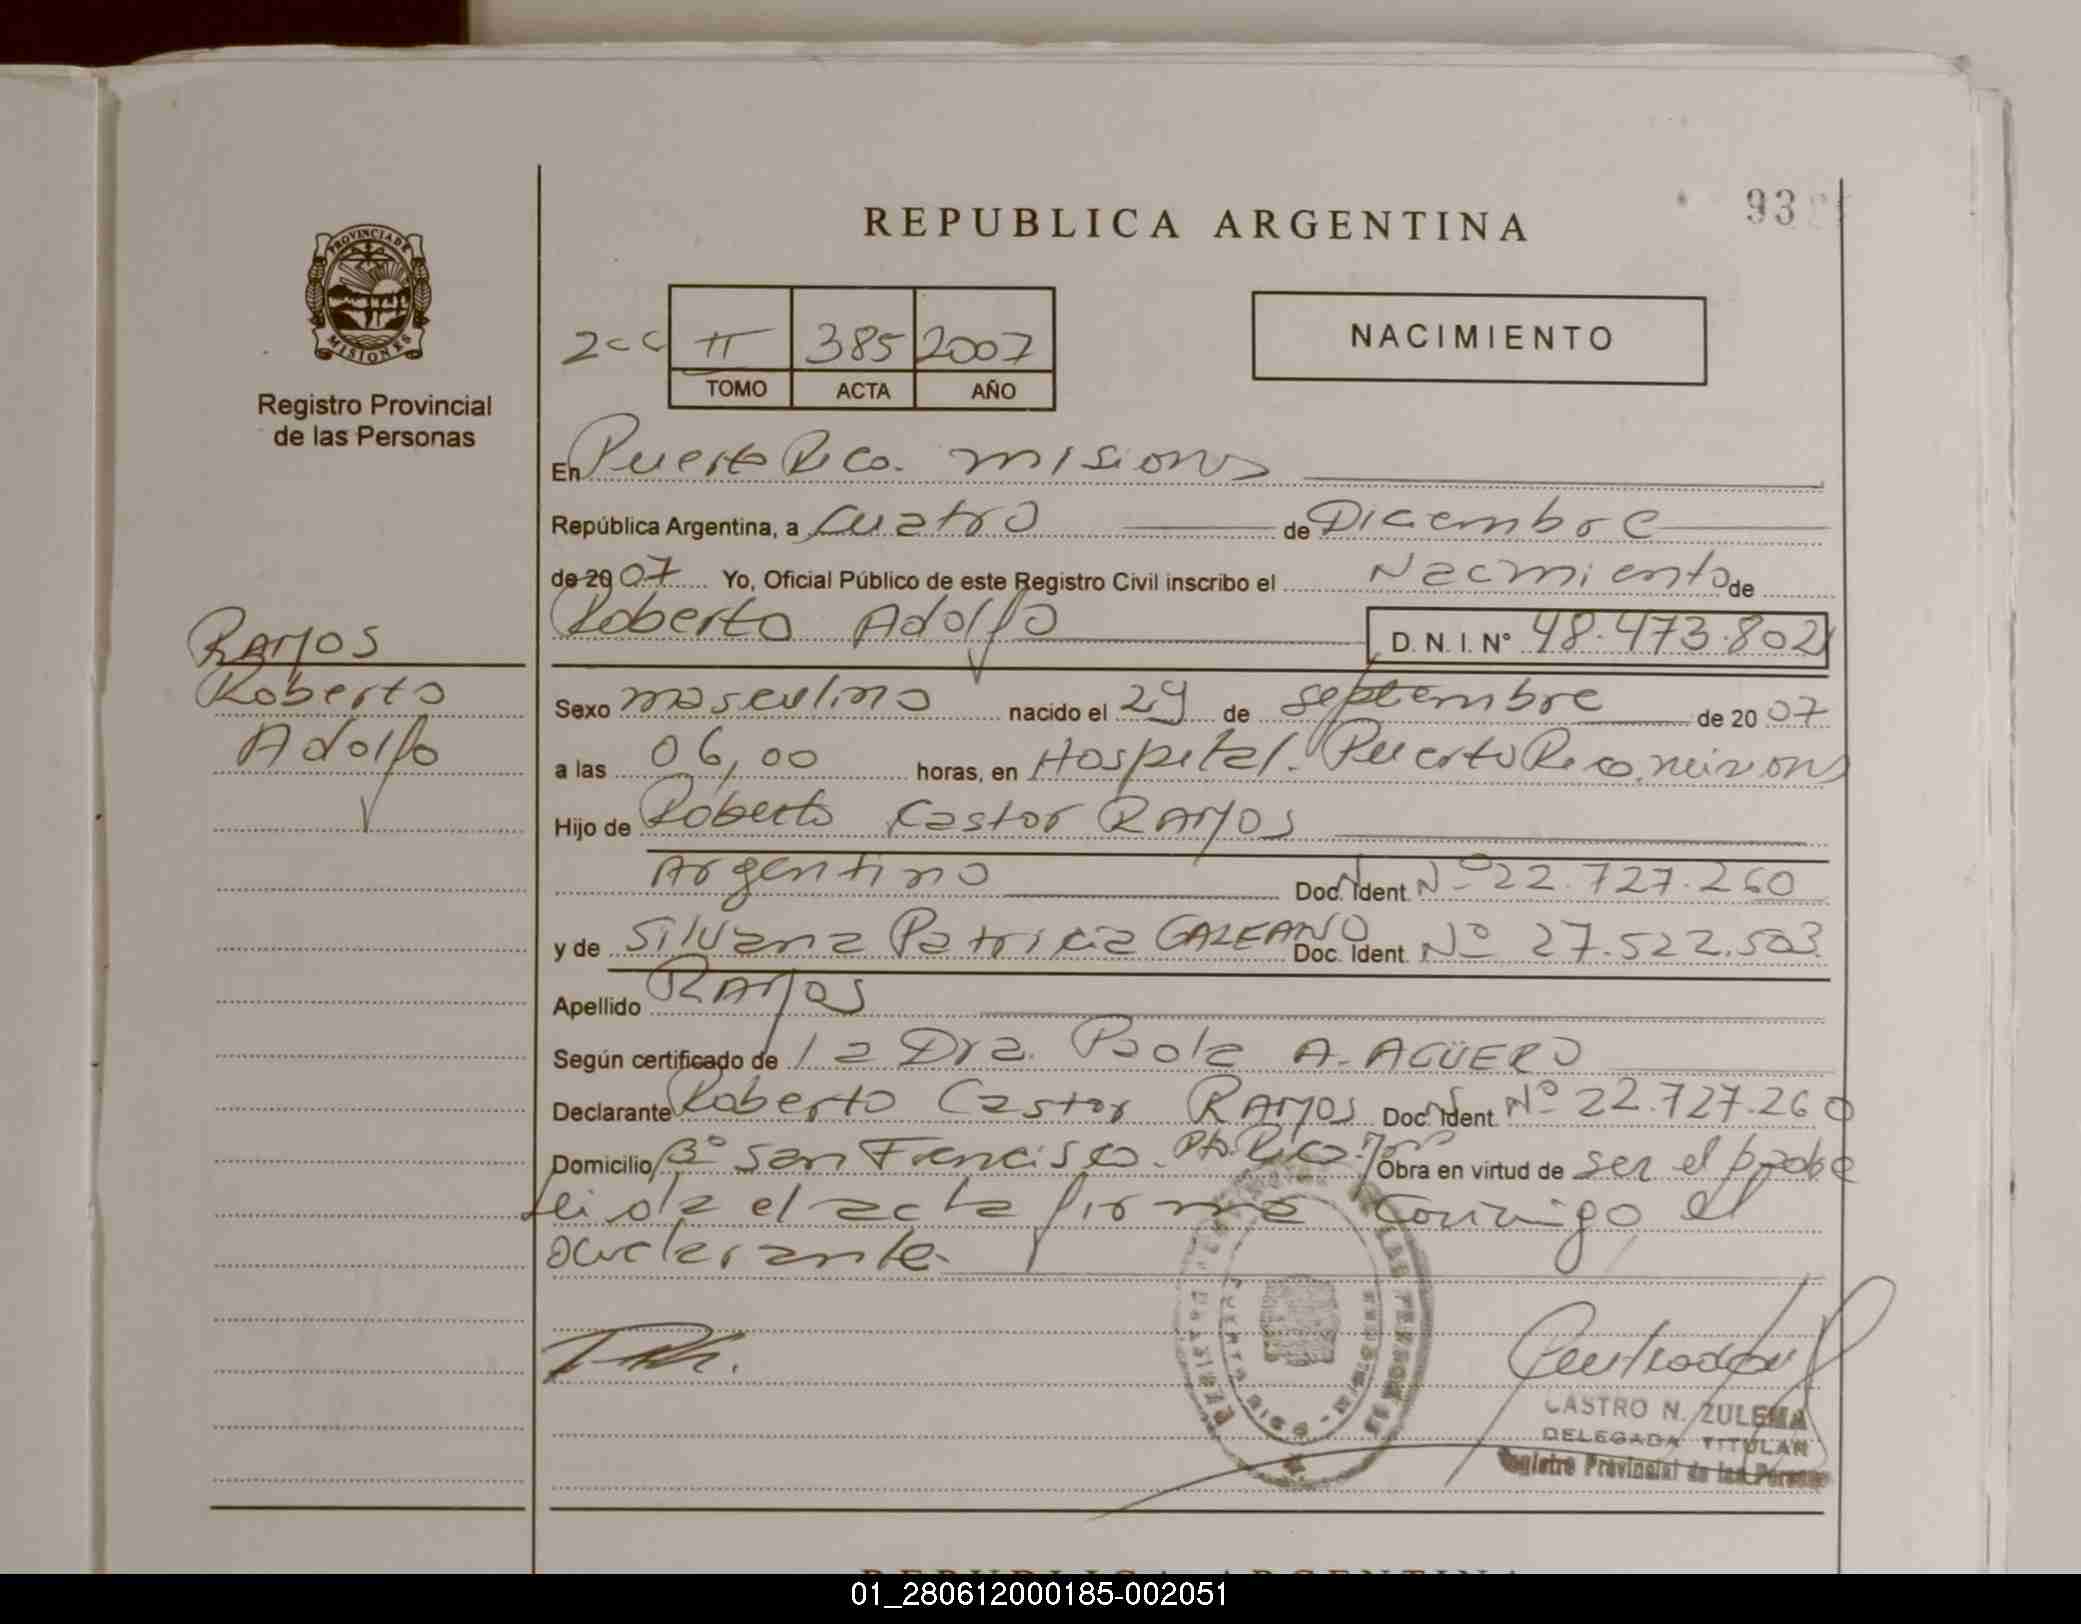 93
REPUBLICA ARGENTINA
PROVINCIA DE
MISIONES
Registro Provincial
de las Personas
2cc II 385 2007
TOMO ACTA AÑO
NACIMIENTO
En Puerto Rico. misiones
República Argentina, a cuatro de Diciembre
de 2007 Yo, Oficial Público de este Registro Civil inscribo el Nacimiento de
Roberto Adolfo D. N. I. N° 48.473.802
RAMOS
Roberto
Adolfo
Sexo masculino nacido el 29 de septiembre de 2007
a las 06,00 horas, en Hospital. Puerto Rico. misiones
Hijo de Roberto Castor RAMOS
Argentino Doc. Ident. Nº 22.727.260
y de Silvana Patricia GALEANO Doc. Ident. Nº 27.522.503
Apellido RAMOS
Según certificado de la Dra. Paola A. AGÜERO
Declarante Roberto Castor RAMOS Doc. Ident. Nº 22.727.260
Domicilio Bº San Francisco. Pto. Rico. Obra en virtud de ser el padre
leida el acta firma conmigo el
declarante.
CASTRO N. ZULEMA
DELEGADA TITULAR
Registro Provincial de las Personas
REPUBLICA ARGENTINA
01_280612000185-002051